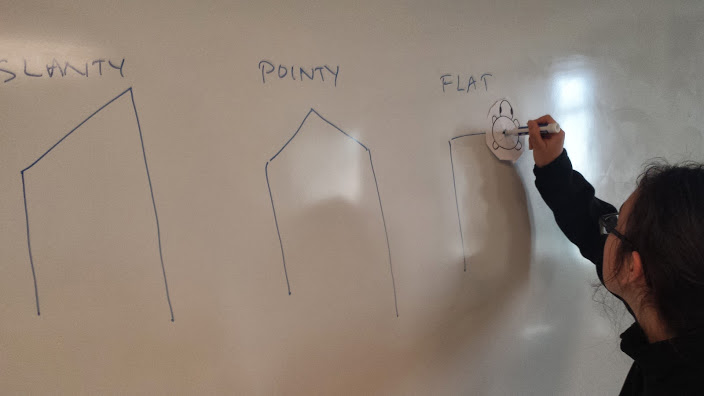 SLANTY
POINTY
FLAT